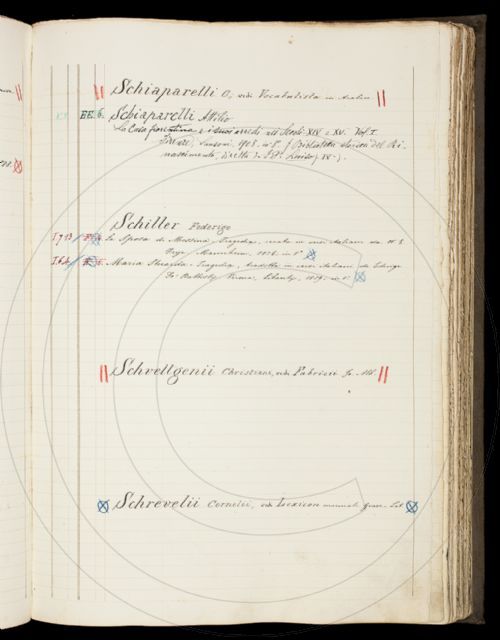 Schiaparelli C., vedi Vocabulista in Arabico
EE. 6. Schiaparelli Attilio
La Casa fiorentina e i suoi arredi nei Secoli XIV e XV. Vol. I.
Firenze, Sansoni, 1908, in 8°. (Biblioteca storica del Ri-
nascimento, diretta da F. P. Luiso, IV.).
Schiller Federigo
La Sposa di Messina, Tragedia, recata in versi italiani da
Mannheim, in 8°
Maria Stuarda - Tragedia, tradotta in versi italiani da
Verona, Libanti, in 8°
Schvettgenii Christiani, vedi Fabricii Jo. Alb.
Schrevelii Cornelii, vedi Lexicon manuale Graec. Lat.